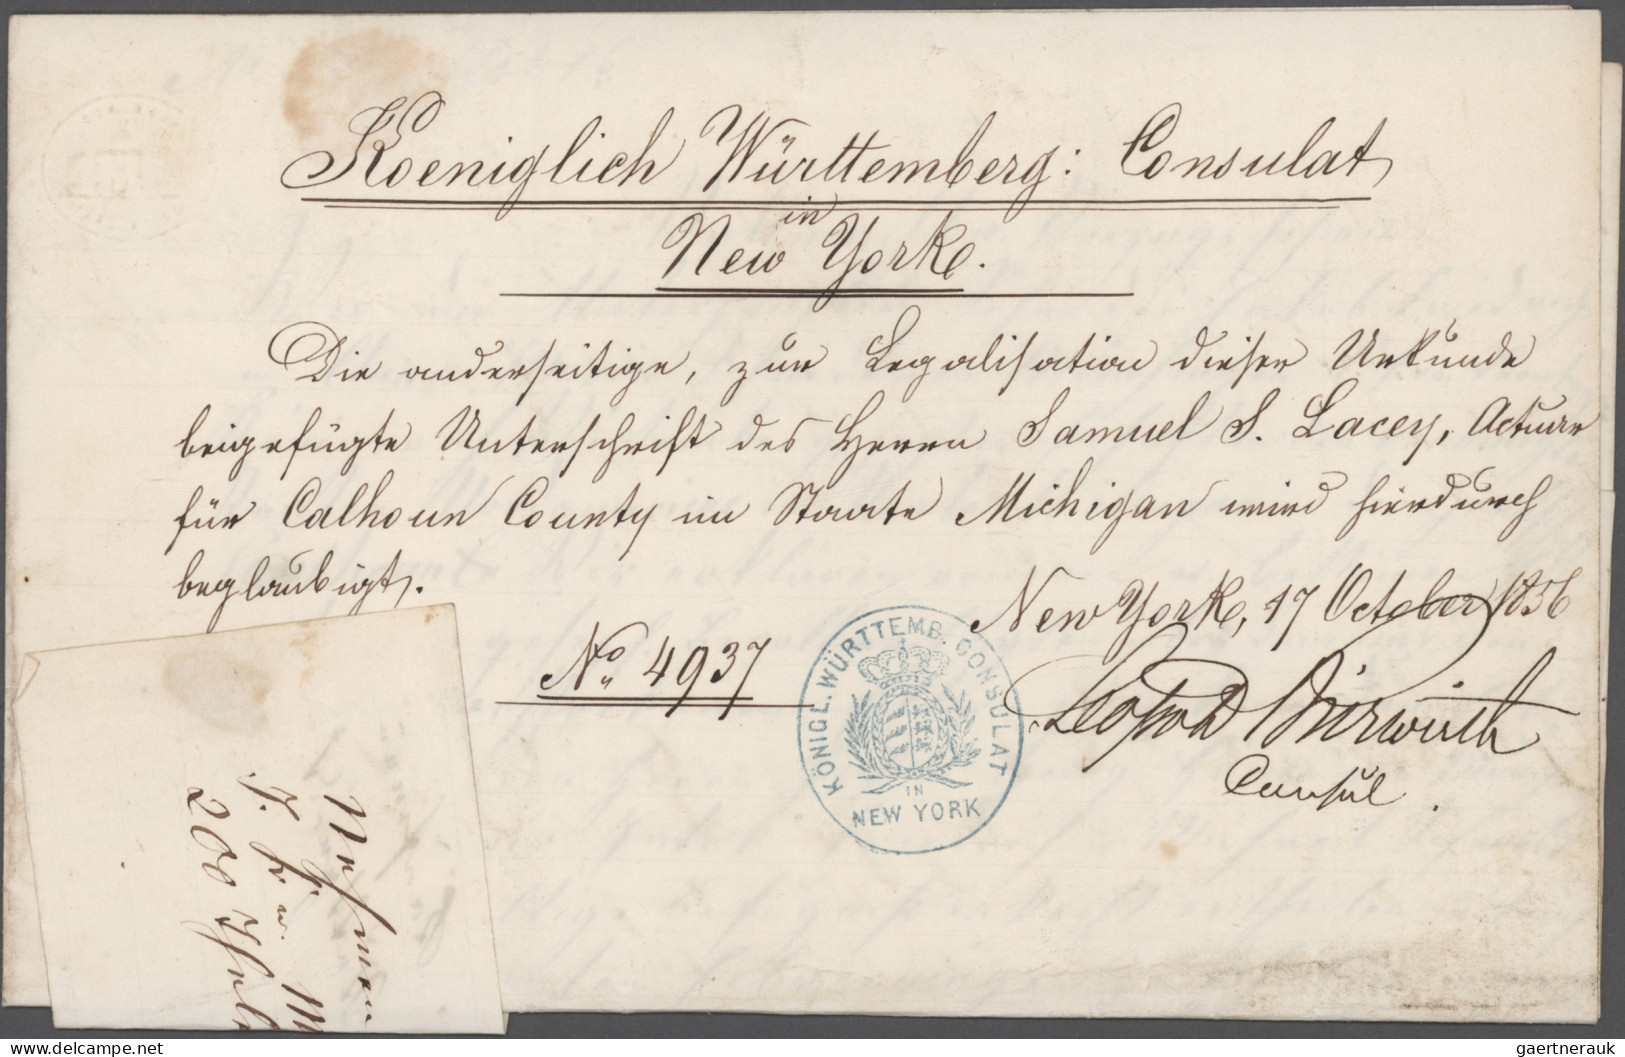 Koeniglich Württemberg: Consulat
in
New York.
Die anderseitige, zur Legalisation dieser Urkunde
beigefügte Unterschrift des Herrn Samuel S. Lacey, Actuar
für Calhoun County im Staate Michigan wird hierdurch
beglaubigt.
New York, 17 October 1856
No 4937
Leopold Bierwirth
Consul.
KÖNIGL. WÜRTTEMB. CONSULAT
IN
NEW YORK
200
delcampe.net
gaertnerauk